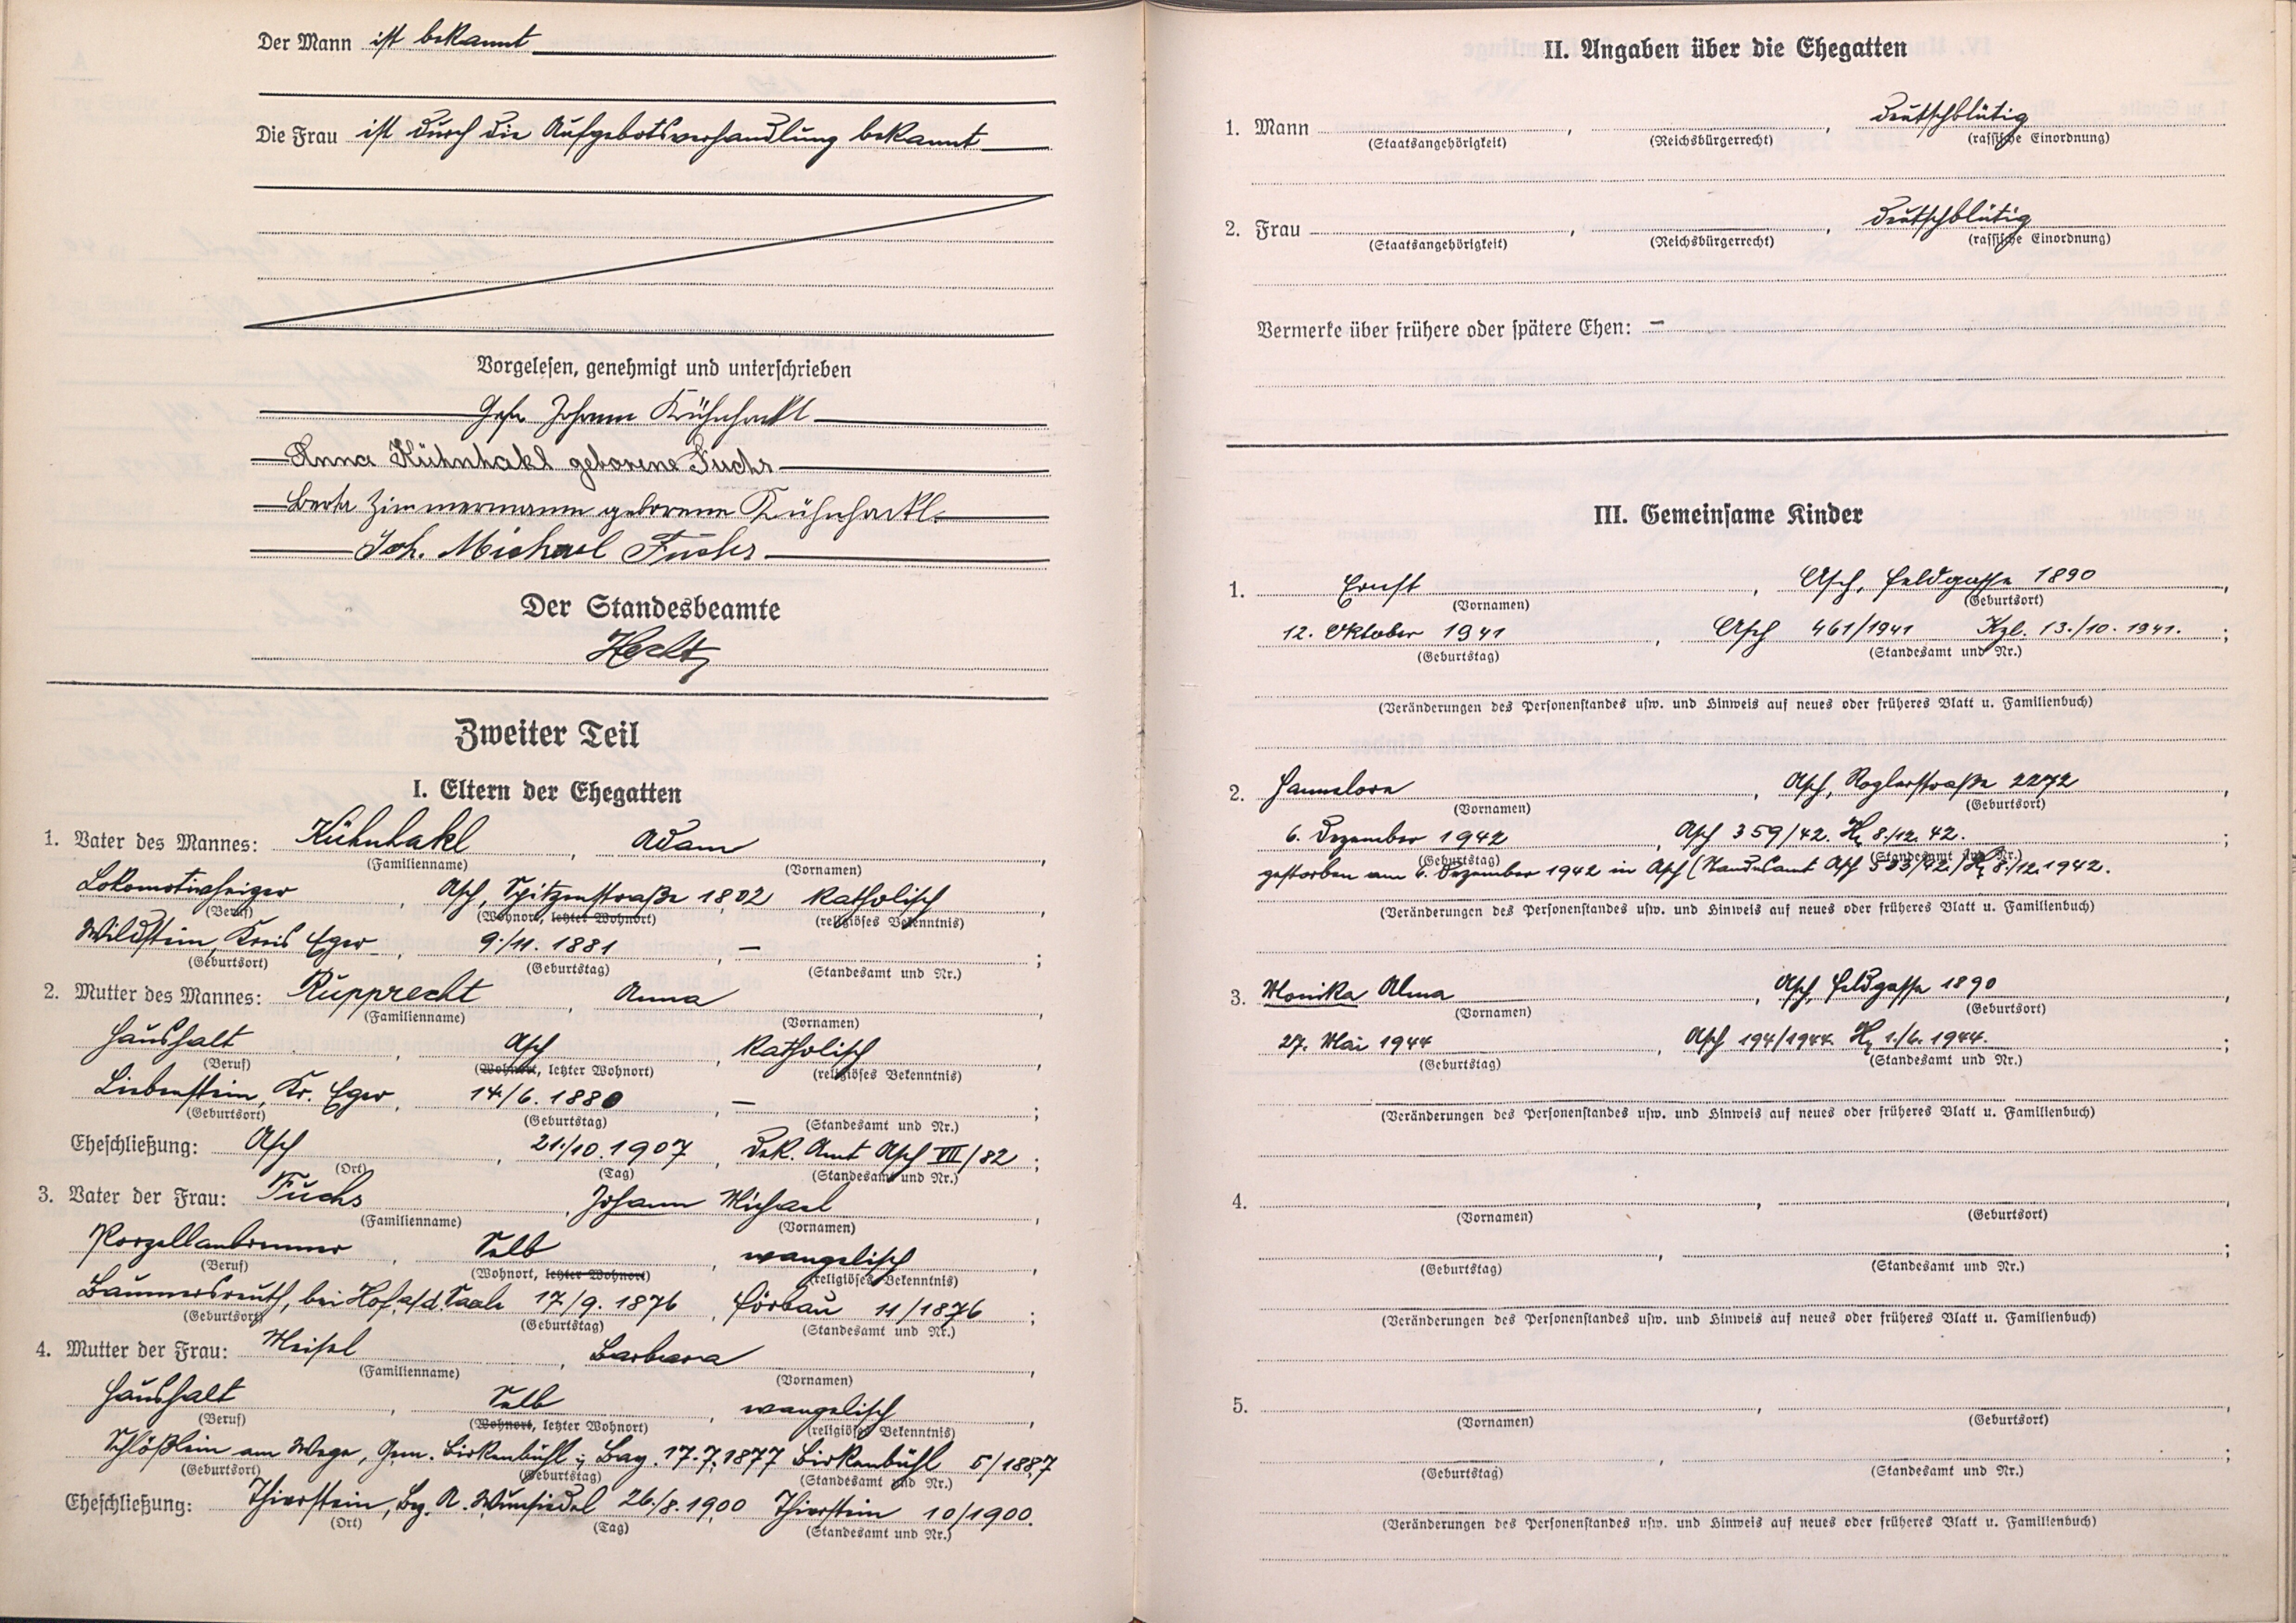 Der Mann ist bekannt
Die Frau ist durch die Aufgebotsverhandlung bekannt
Vorgelesen, genehmigt und unterschrieben
Johann Kühnhackl
Anna Kühnhakl geborene Fuchs
Berta Zimmermann geborene Kühnhackl.
Joh. Michael Fuchs
Der Standesbeamte
Zweiter Teil
I. Eltern der Ehegatten
1. Vater des Mannes: Kühnhakl, Adam,
(Familienname) (Vornamen)
Lokomotivheizer, Asch, Spitzenstraße 1802 katholisch,
(Beruf) (Wohnort, letzter Wohnort) (religiöses Bekenntnis)
Wildstein, Kreis Eger, 9./11. 1881, – ;
(Geburtsort) (Geburtstag) (Standesamt und Nr.)
2. Mutter des Mannes: Rupprecht, Anna,
(Familienname) (Vornamen)
Haushalt, Asch, katholisch,
(Beruf) (Wohnort, letzter Wohnort) (religiöses Bekenntnis)
Liebenstein, Kr. Eger, 14./6. 1880, – ;
(Geburtsort) (Geburtstag) (Standesamt und Nr.)
Eheschließung: Asch, 21./10. 1907, Dek. Amt Asch VII/82 ;
(Ort) (Tag) (Standesamt und Nr.)
3. Vater der Frau: Fuchs, Johann Michael,
(Familienname) (Vornamen)
Porzellanbrenner, Selb, evangelisch,
(Beruf) (Wohnort, letzter Wohnort) (religiöses Bekenntnis)
Baumersreuth, bei Hof a/d. Saale 17./9. 1876, Förbau 11/1876 ;
(Geburtsort) (Geburtstag) (Standesamt und Nr.)
4. Mutter der Frau: Meisel, Barbara,
(Familienname) (Vornamen)
Haushalt, Selb, evangelisch,
(Beruf) (Wohnort, letzter Wohnort) (religiöses Bekenntnis)
Schlößlein am Wege, Gem. Birkenbühl i. Bay. 17.7.1877 Birkenbühl 5/1887
(Geburtsort) (Geburtstag) (Standesamt und Nr.)
Eheschließung: Thierstein, Bz. A. Wunsiedel 26./8. 1900 Thierstein 10/1900.
(Ort) (Tag) (Standesamt und Nr.)
II. Angaben über die Ehegatten
1. Mann , , deutschblütig
(Staatsangehörigkeit) (Reichsbürgerrecht) (rassische Einordnung)
2. Frau , , deutschblütig
(Staatsangehörigkeit) (Reichsbürgerrecht) (rassische Einordnung)
Vermerke über frühere oder spätere Ehen: –
III. Gemeinsame Kinder
1. Ernst, Asch, Feldgasse 1890,
(Vornamen) (Geburtsort)
12. Oktober 1941, Asch 461/1941 Kzl. 13./10. 1941. ;
(Geburtstag) (Standesamt und Nr.)
(Veränderungen des Personenstandes usw. und Hinweis auf neues oder früheres Blatt u. Familienbuch)
2. Hannelore, Asch, Roglerstraße 2272,
(Vornamen) (Geburtsort)
6. Dezember 1942, Asch 359/42. 8./12. 42. ;
(Geburtstag) (Standesamt und Nr.)
gestorben am 6. Dezember 1942 in Asch (Standesamt Asch 8./12. 1942.
(Veränderungen des Personenstandes usw. und Hinweis auf neues oder früheres Blatt u. Familienbuch)
3. Monika Alma, Asch, Feldgasse 1890,
(Vornamen) (Geburtsort)
27. Mai 1944, Asch 194/1944. 1./6. 1944. ;
(Geburtstag) (Standesamt und Nr.)
(Veränderungen des Personenstandes usw. und Hinweis auf neues oder früheres Blatt u. Familienbuch)
4. , ,
(Vornamen) (Geburtsort)
, ;
(Geburtstag) (Standesamt und Nr.)
(Veränderungen des Personenstandes usw. und Hinweis auf neues oder früheres Blatt u. Familienbuch)
5. , ,
(Vornamen) (Geburtsort)
, ;
(Geburtstag) (Standesamt und Nr.)
(Veränderungen des Personenstandes usw. und Hinweis auf neues oder früheres Blatt u. Familienbuch)